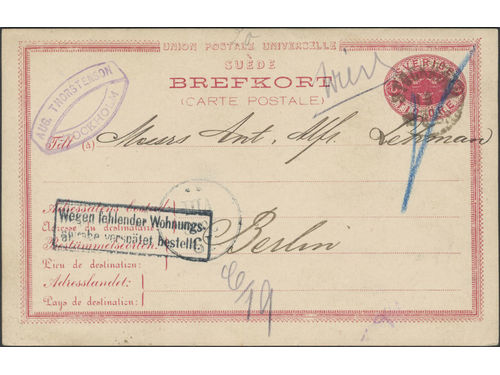 UNION POSTALE UNIVERSELLE
SUÈDE
BREFKORT
(CARTE POSTALE)
SVERIGE
AUG. THORSTENSON
STOCKHOLM
Till (à) Messrs Ant. Alfr. Lehman
Adressatens bostad:
Adresse du destinataire:
Wegen fehlender Wohnungs-
angabe verspätet bestellt.
Bestämmelseorten: Berlin
Lieu de destination:
Adresslandet:
Pays de destination: